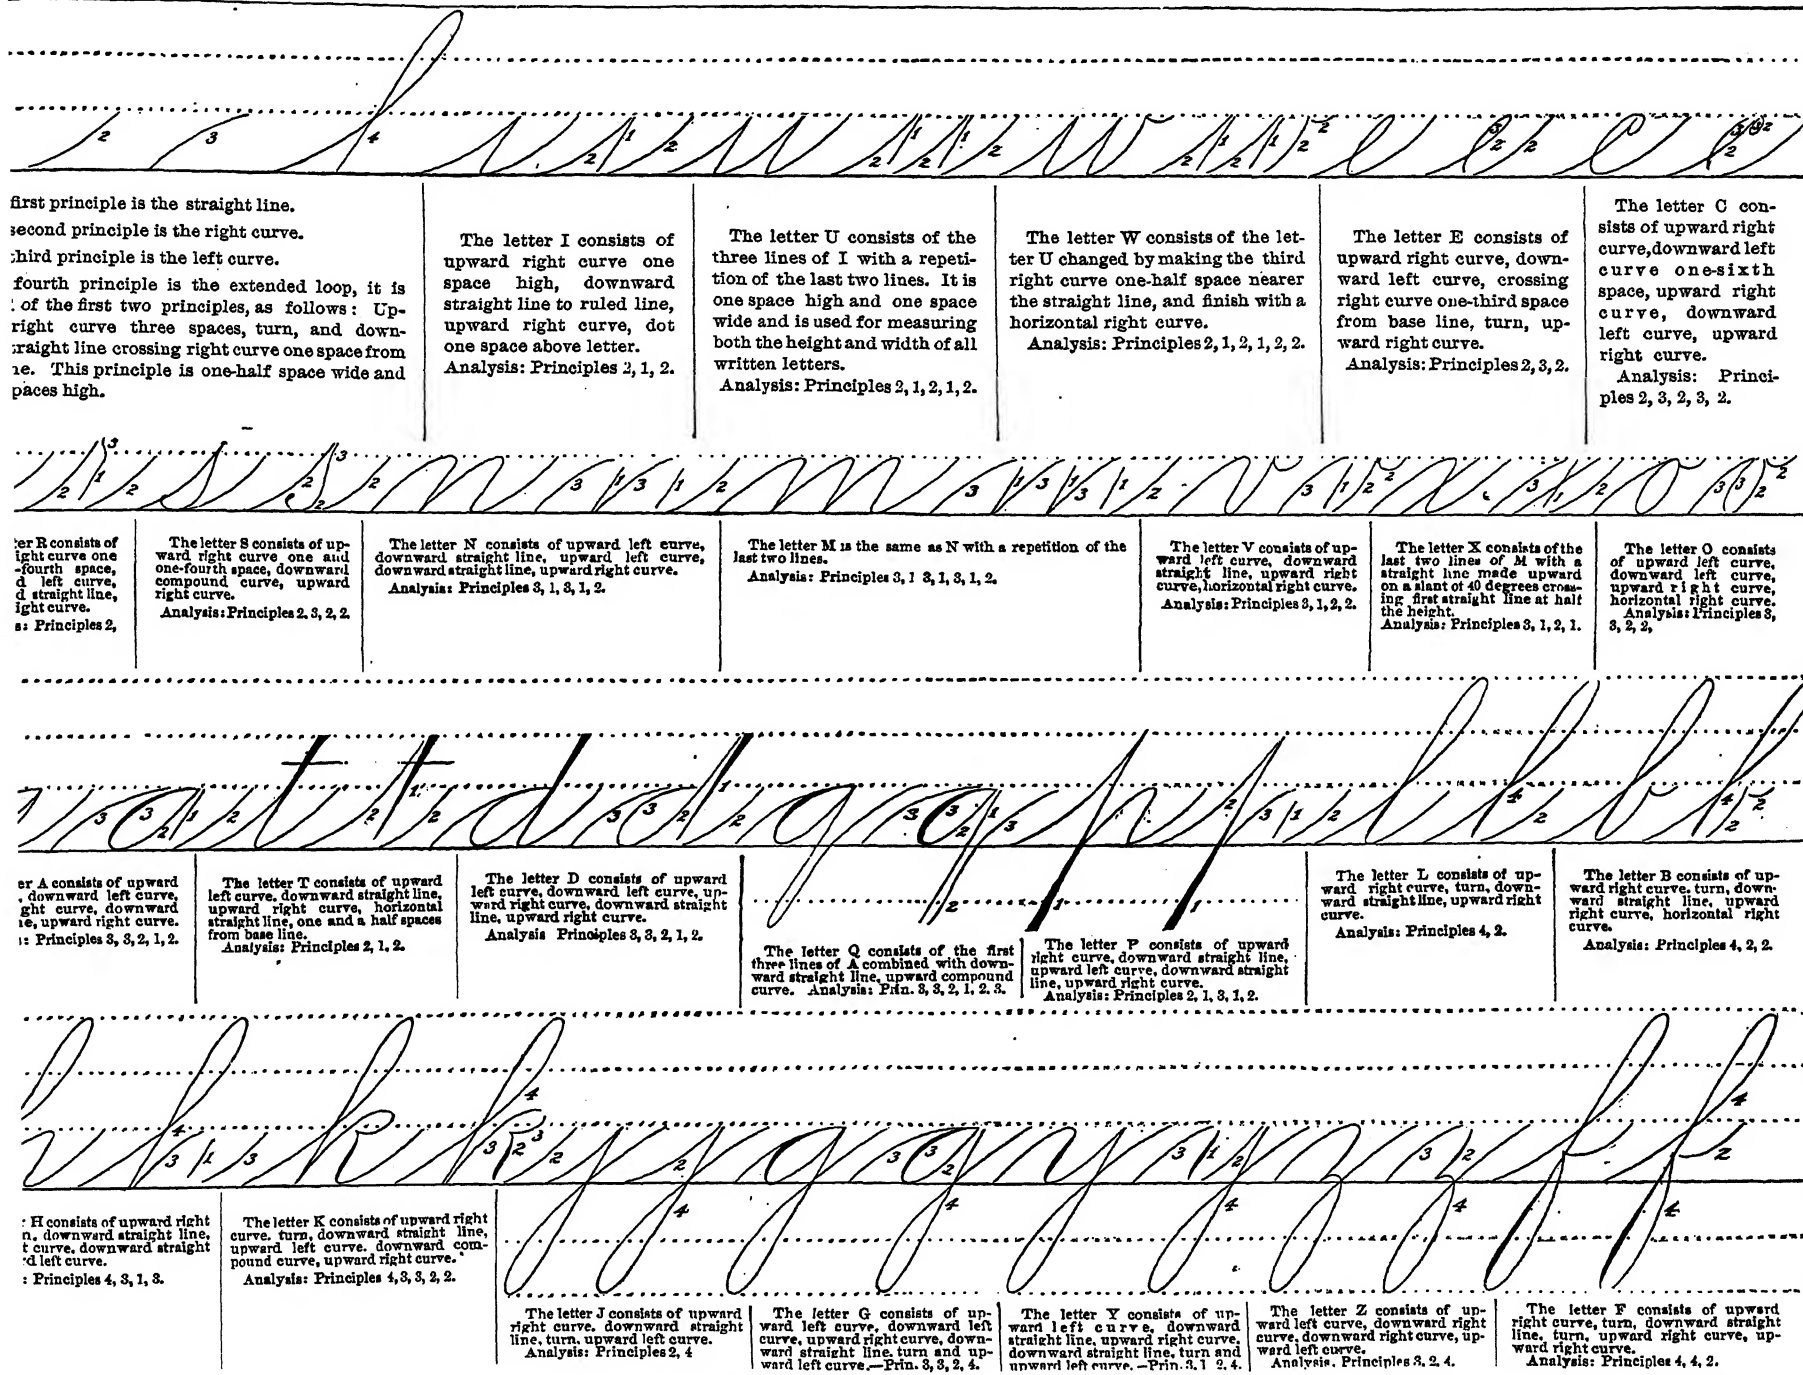 2 3 4 i 2 1 2 u 2 1 2 1 2 w 2 1 2 1 2 2 e 2 3 2 c 2 3 2 3 2
first principle is the straight line.
second principle is the right curve.
third principle is the left curve.
fourth principle is the extended loop, it is
of the first two principles, as follows: Up-
right curve three spaces, turn, and down-
raight line crossing right curve one space from
ne. This principle is one-half space wide and
paces high.
The letter I consists of
upward right curve one
space high, downward
straight line to ruled line,
upward right curve, dot
one space above letter.
Analysis: Principles 2, 1, 2.
The letter U consists of the
three lines of I with a repeti-
tion of the last two lines. It is
one space high and one space
wide and is used for measuring
both the height and width of all
written letters.
Analysis: Principles 2, 1, 2, 1, 2.
The letter W consists of the let-
ter U changed by making the third
right curve one-half space nearer
the straight line, and finish with a
horizontal right curve.
Analysis: Principles 2, 1, 2, 1, 2, 2.
The letter E consists of
upward right curve, down-
ward left curve, crossing
right curve one-third space
from base line, turn, up-
ward right curve.
Analysis: Principles 2, 3, 2.
The letter C con-
sists of upward right
curve, downward left
curve one-sixth
space, upward right
curve, downward
left curve, upward
right curve.
Analysis: Princi-
ples 2, 3, 2, 3, 2.
2 1 3 2 s 2 3 2 2 n 3 1 3 1 2 m 3 1 3 1 3 1 2 v 3 1 2 2 x 3 1 2 o 3 3 2 2
er R consists of
ight curve one
-fourth space,
d left curve,
d straight line,
ight curve.
s: Principles 2,
The letter S consists of up-
ward right curve one and
one-fourth space, downward
compound curve, upward
right curve.
Analysis: Principles 2, 3, 2, 2.
The letter N consists of upward left curve,
downward straight line, upward left curve,
downward straight line, upward right curve.
Analysis: Principles 3, 1, 3, 1, 2.
The letter M is the same as N with a repetition of the
last two lines.
Analysis: Principles 3, 1 3, 1, 3, 1, 2.
The letter V consists of up-
ward left curve, downward
straight line, upward right
curve, horizontal right curve.
Analysis: Principles 3, 1, 2, 2.
The letter X consists of the
last two lines of M with a
straight line made upward
on a slant of 40 degrees cross-
ing first straight line at half
the height.
Analysis: Principles 3, 1, 2, 1.
The letter O consists
of upward left curve,
downward left curve,
upward right curve,
horizontal right curve.
Analysis: Principles 3,
3, 2, 2,
3 3 2 1 2 t 2 1 2 d 3 3 2 1 2 q 3 3 2 1 3 2 p 2 1 3 1 2 l 4 2 b 4 2 2
er A consists of upward
, downward left curve,
ght curve, downward
ie, upward right curve.
: Principles 3, 3, 2, 1, 2.
The letter T consists of upward
left curve, downward straight line,
upward right curve, horizontal
straight line, one and a half spaces
from base line.
Analysis: Principles 2, 1, 2.
The letter D consists of upward
left curve, downward left curve, up-
ward right curve, downward straight
line, upward right curve.
Analysis Principles 3, 3, 2, 1, 2.
The letter Q consists of the first
three lines of A combined with down-
ward straight line, upward compound
curve. Analysis: Prin. 3, 3, 2, 1, 2. 3.
The letter P consists of upward
right curve, downward straight line,
upward left curve, downward straight
line, upward right curve.
Analysis: Principles 2, 1, 3, 1, 2.
The letter L consists of up-
ward right curve, turn, down-
ward straight line, upward right
curve.
Analysis: Principles 4, 2.
The letter B consists of up-
ward right curve. turn, down-
ward straight line, upward
right curve, horizontal right
curve.
Analysis: Principles 4, 2, 2.
h 4 3 1 3 k 4 3 2 3 2 j 2 4 g 3 3 2 4 y 3 1 2 4 z 3 2 4 f 4 4 2
H consists of upward right
n, downward straight line,
t curve, downward straight
d left curve.
: Principles 4, 3, 1, 3.
The letter K consists of upward right
curve, turn, downward straight line,
upward left curve. downward com-
pound curve, upward right curve.
Analysis: Principles 4, 3, 3, 2, 2.
The letter J consists of upward
right curve, downward straight
line, turn, upward left curve.
Analysis: Principles 2, 4
The letter G consists of up-
ward left curve, downward left
curve, upward right curve, down-
ward straight line, turn and up-
ward left curve.—Prin. 3, 3, 2, 4.
The letter Y consists of up-
ward left curve, downward
straight line, upward right curve,
downward straight line, turn and
upward left curve.—Prin. 3, 1 2, 4.
The letter Z consists of up-
ward left curve, downward right
curve, downward right curve, up-
ward left curve.
Analysis. Principles 3, 2, 4.
The letter F consists of upward
right curve, turn, downward straight
line, turn, upward right curve, up-
ward right curve.
Analysis: Principles 4, 4, 2.